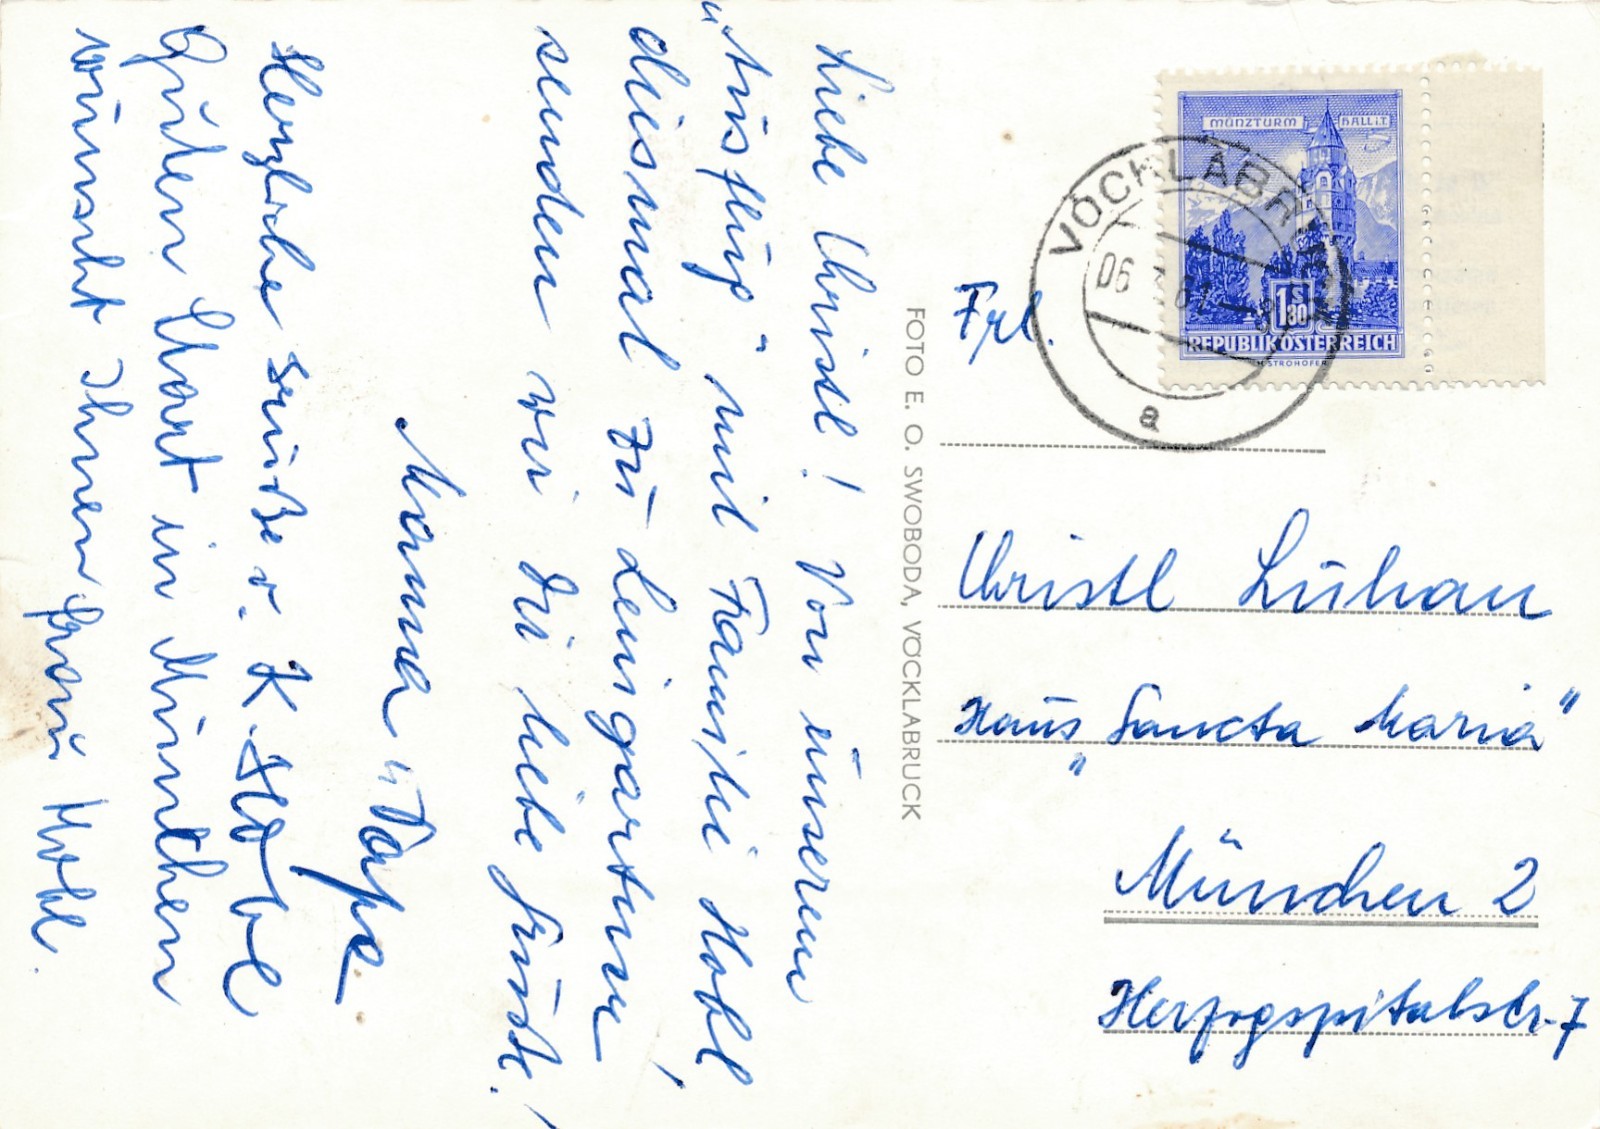 Liebe Christl! Von unserem
"Ausflug" mit Familie Hobl
diesmal zu Leingartner,
senden wir Dir liebe Grüße!
Mama u. Papa
Herzliche Grüße v. K. Hobl
Guten Start in München
wünscht Ihnen Frau Hobl.
FOTO E. O. SWOBODA, VÖCKLABRUCK
MÜNZTURM HALL i.T.
1 S 80
REPUBLIK ÖSTERREICH
H. STROHOFER
VÖCKLABRUCK
06
a
Frl.
Christl Luhan
Haus „Sancta Maria"
München 2
Herzogspitalstr. 7